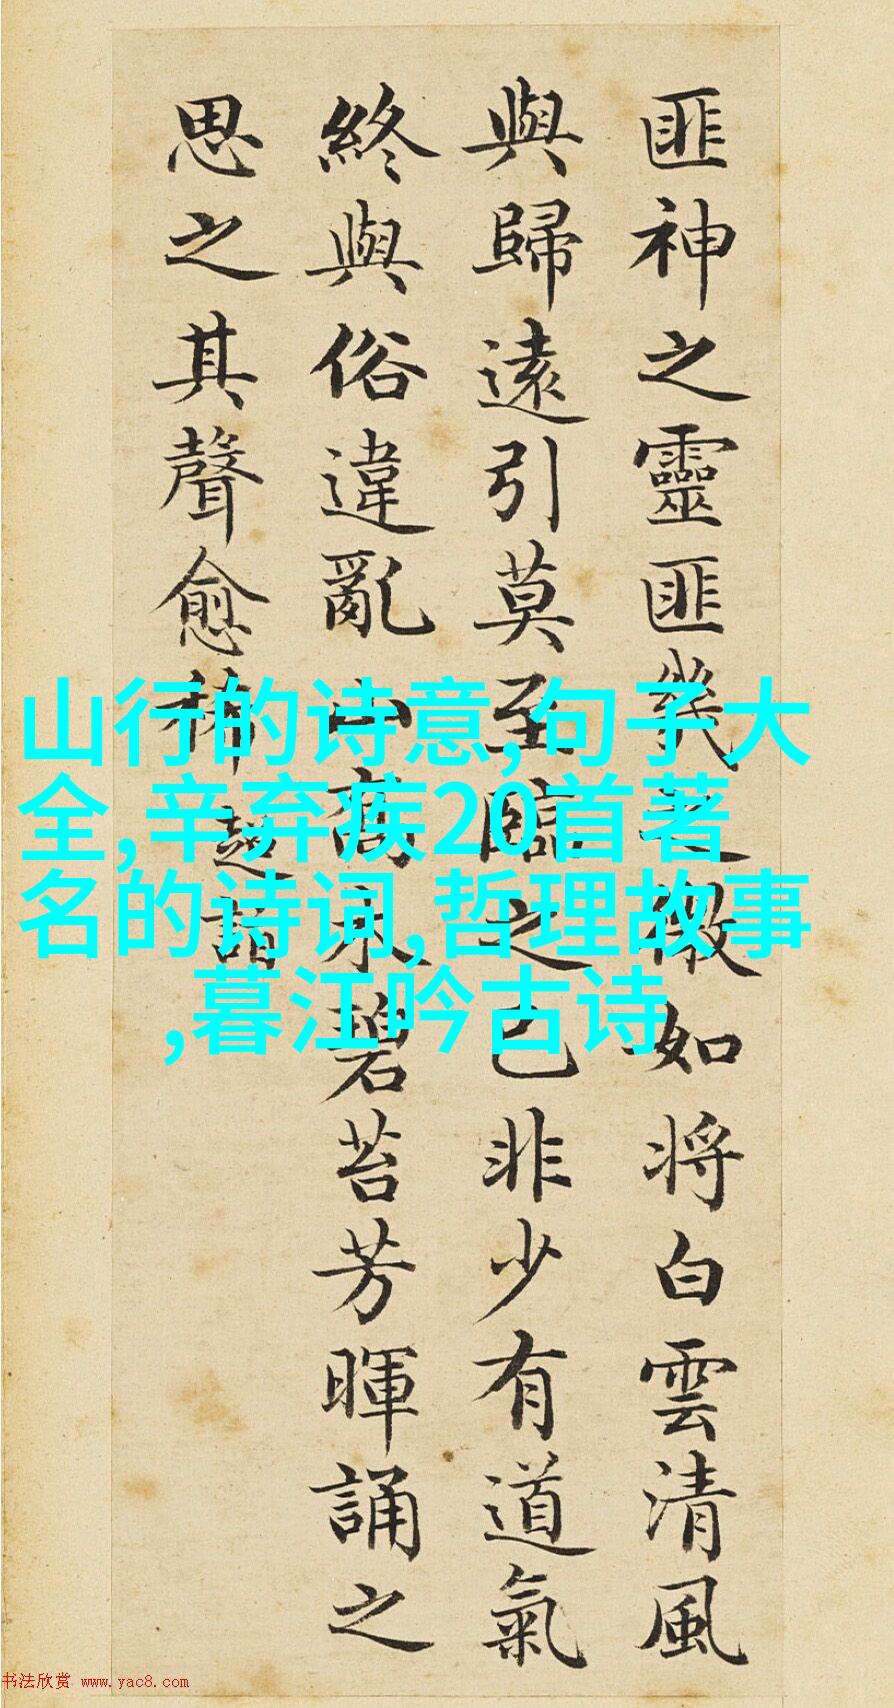 匪神之靈匪幾之微如将白雲清風
與歸遠引莫至臨之已非少有道氣
終與俗違亂山喬木碧苔芳暉誦之
思之其聲愈稀 超詣
山行的诗意,句子大
全,辛弃疾20首著
名的诗词,哲理故事
,暮江吟古诗
书法欣赏 www.yac8.com